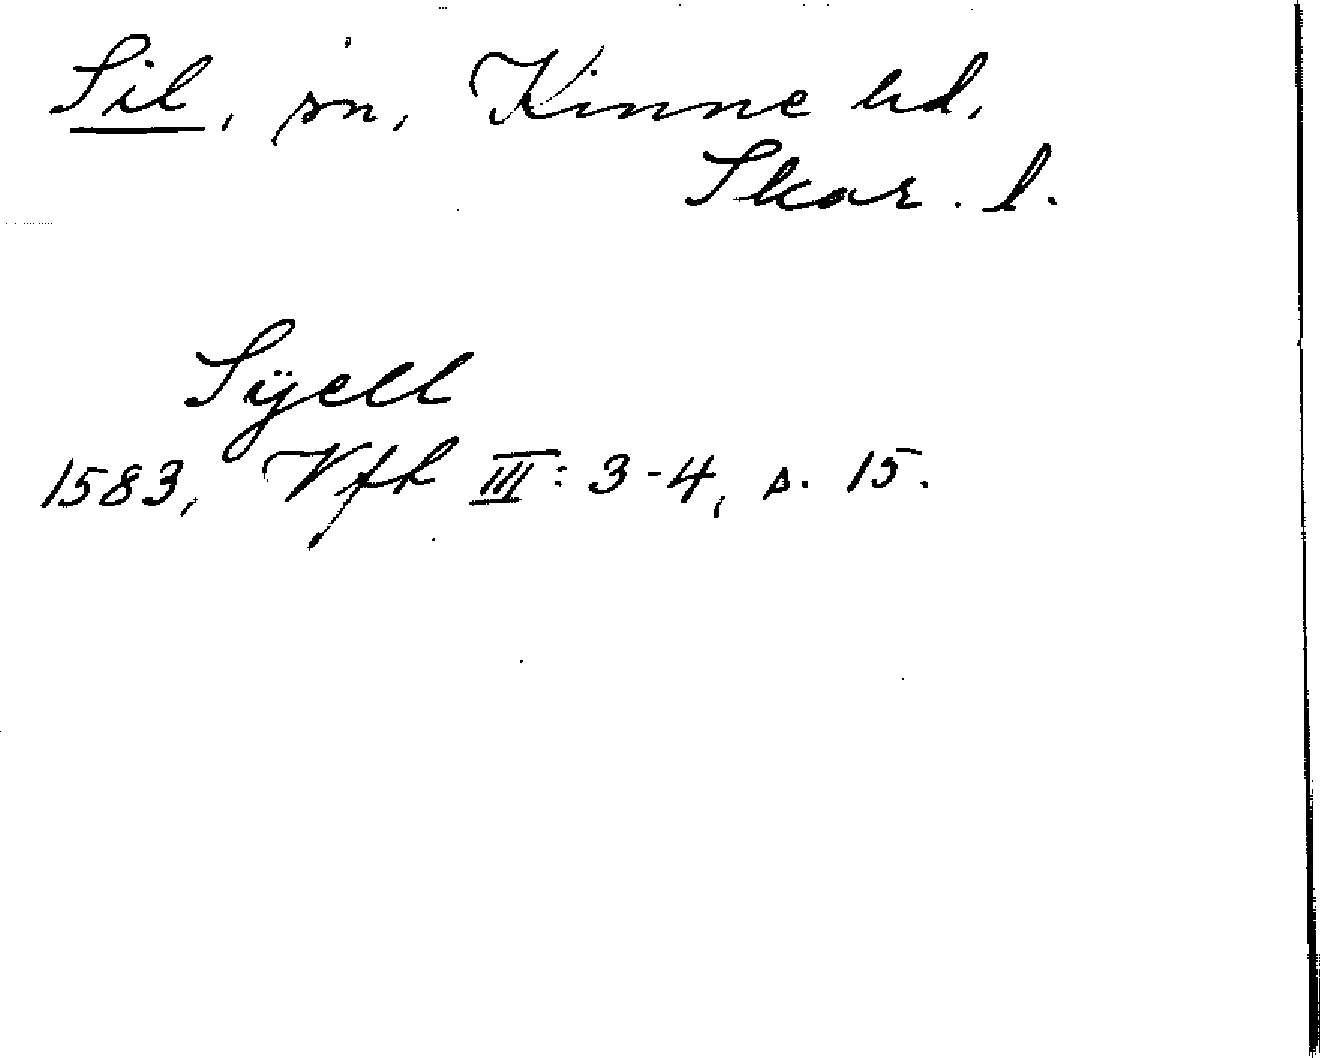 Sil, sn, Kinne hd,
Skar. l.
Sÿell
1583, Vfh III: 3-4, s. 15.